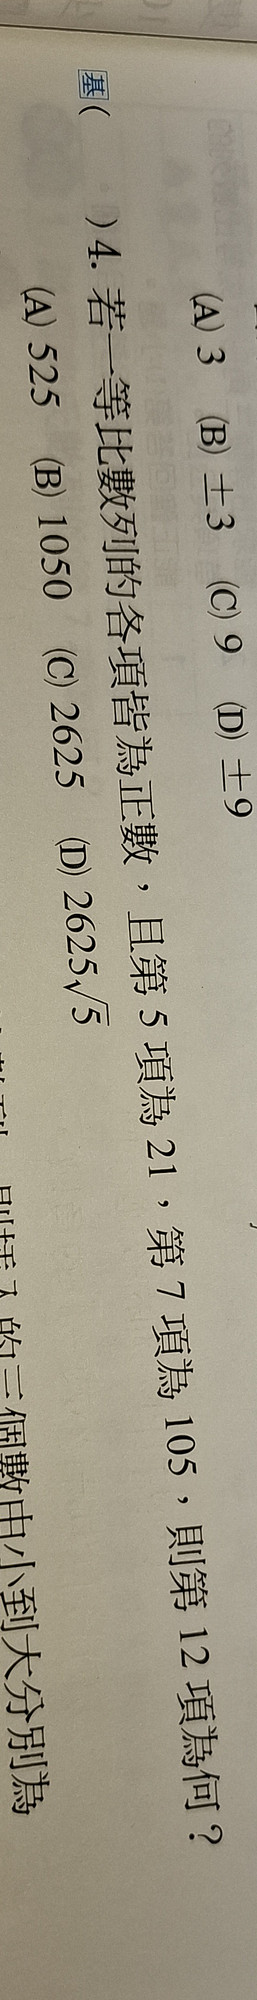 (A) 3 (B) ±3 (C) 9 (D) ±9
基 ( ) 4. 若一等比數列的各項皆為正數，且第 5 項為 21，第 7 項為 105，則第 12 項為何？
(A) 525 (B) 1050 (C) 2625 (D) 2625√5
別插入的三個數由小到大分別為